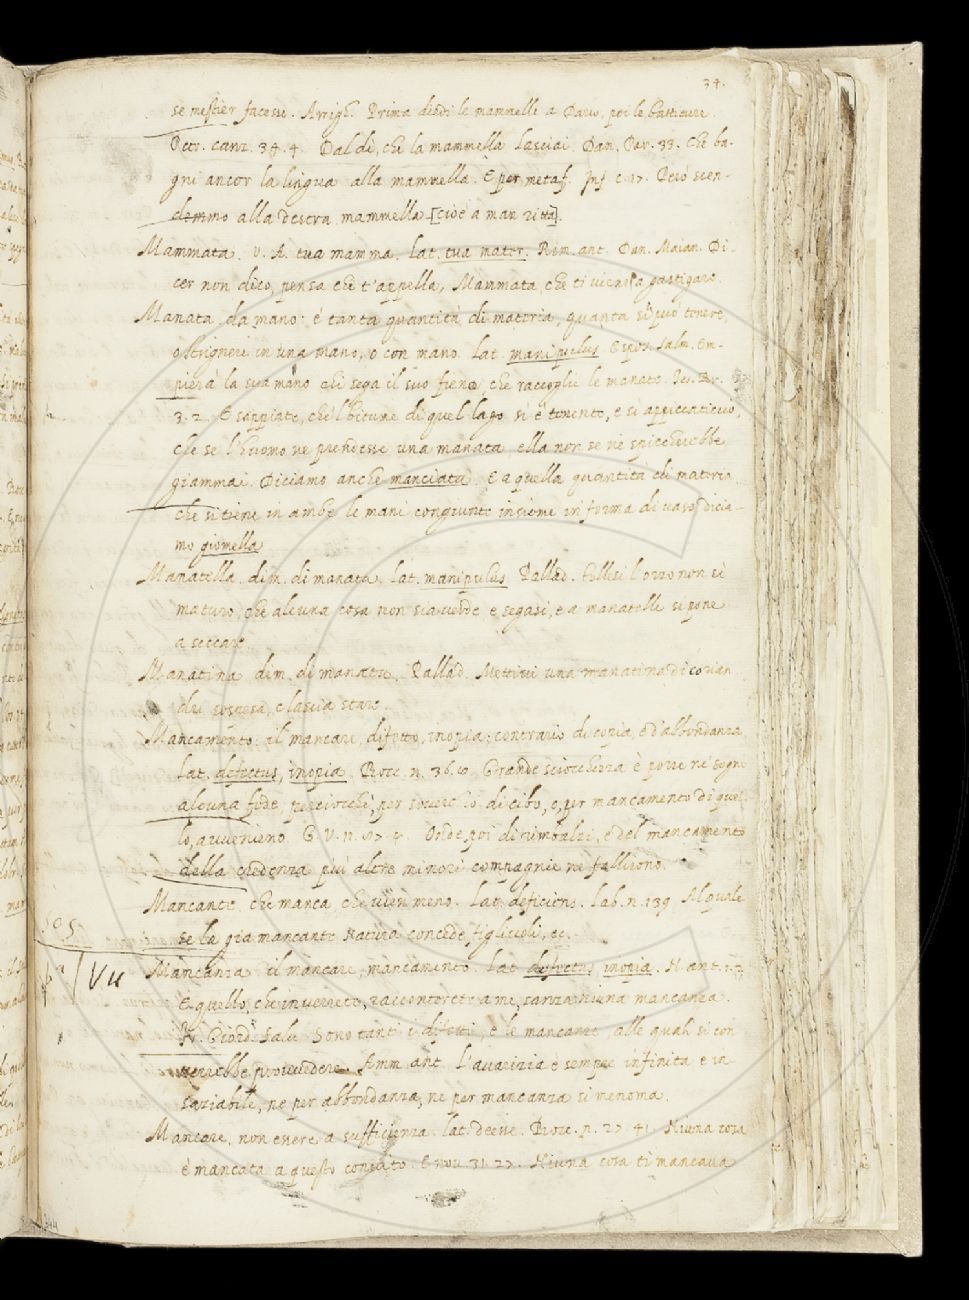 34.
se mestier facesse. Arrigh. Prima diedi le mammelle a Dario, poi le battiture
Petr. canz. 34. 4. Dal dì, che la mammella lasciai Dan. Par. 33. Che ba-
gni ancor la lingua alla mammella. E per metaf. Inf. c. 17. Però scen-
demmo alla destra mammella [cioè a man ritta].
Mammata. v. A. tua mamma. Lat. tua mater. Rim. ant. Dan. Maian. Di-
cer non dico, pensa che t'appella, Mammata, che ti gastigare.
Manata da mano: è tanta quantità di materia, quanta si può tenere,
o strignere in una mano, o con mano. Lat. manipulus Espos. Salm. Em-
pierà la sua mano chi sega il suo fieno che raccoglie le manate. Tes. Br.
3. 2. E sappiate, che l bitume di quel lago si è tenente, e sì appiccaticcio,
che se l'huomo ne prendesse una manata ella non se ne spiccherebbe
giammai. Diciamo anche manciata. E a quella quantità di materia
che si tiene in ambe le mani congiunte insieme in forma di vaso dicia-
mo giomella
Manatella. dim. di manata. Lat. manipulus Pallad. l orzo non sì
maturo, che alcuna cosa non sia verde e segasi, e a manatelle si pone
a seccare.
Manatina dim. di manata. Pallad. Mettivi una manatina di corian-
dri sospesa, e lascia stare.
Mancamento. il mancare, difetto, inopia: contrario di copia, e d'abbondanza
Lat. defectus, inopia. Bocc. n. Grande sciocchezza è porre ne' sogni
alcuna fede, perciocchè, per soverchio di cibo, o, per mancamento di quel
lo, avvenieno. G. V. 11. Onde poi di rimbalzi, e del mancamento
della credenza più altre minori compagnie ne falliono.
Mancante. che manca che vien meno. Lat. deficiens. Lab. n. 139 Al quale
505
se la già mancante Natura concede figliuoli, ec.
Mancanza il mancare, mancamento. Lat. defectus inopia. N. ant.
E quello, che in verrete, racconterete a me, sanza niuna mancanza.
Fr. Giord. Salv. Sono tanti i difetti, e le mancanze, alle quali si con
verrebbe provvedere. Amm. ant. L'avarizia è sempre infinita e in-
saziabile, ne per abbondanza, ne per mancanza si menoma.
Mancare, non essere a sufficienza. Lat. deesse. Bocc. n. 27 41 Niuna cosa
è mancata a questo convito. E nov. 31. 27. Niuna cosa ti mancava